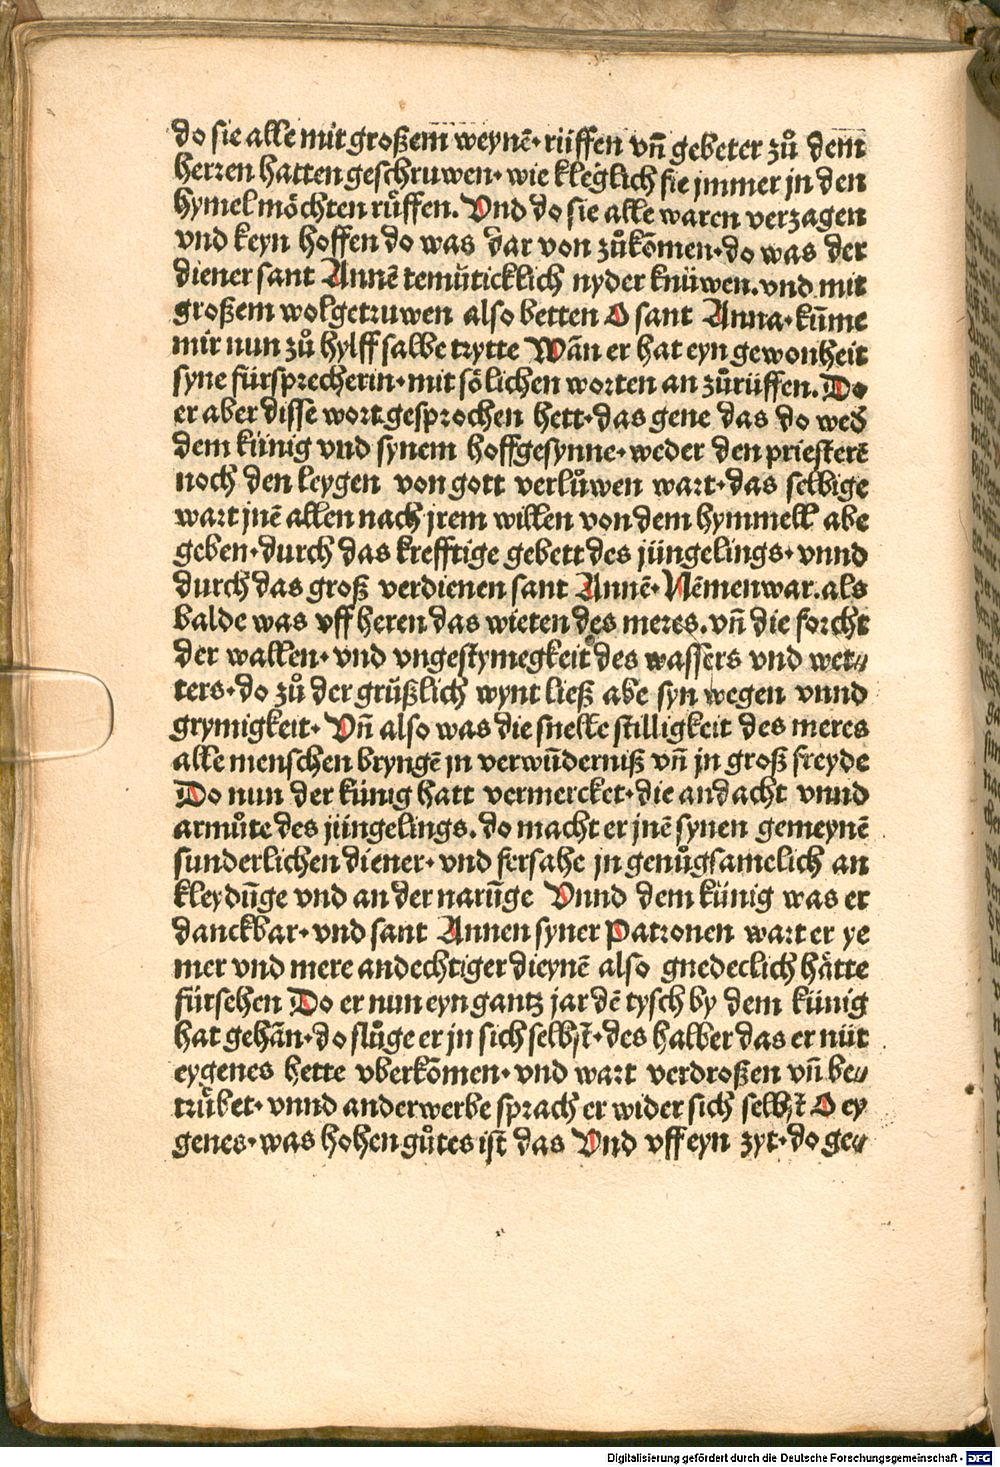 do sie alle mit großem weynē· rüffen vn̄ gebeter zů dem
herren hatten geschruwen· wie kleglich sie jmmer jn den
hymel möchten rüffen. Vnd do sie alle waren verzagen
vnd keyn hoffen do was dar von zůkōmen· do was der
diener sant Annē temüticklich nyder knüwen. vnd mit
großem wolgetruwen also betten O sant Anna· kūme
mir nun zů hylff salbe trytte Wān er hat eyn gewonheit
syne fürsprecherin· mit sölichen worten an zůrüffen. Do
er aber disse wort gesprochen hett· das gene das do wed̕
dem künig vnd synem hoffgesynne· weder den priesterē
noch den leygen von gott verlůwen wart· das selbige
wart jnē allen nach jrem willen von dem hymmell abe
geben· durch das krefftige gebett des jüngelings· vnnd
durch das groß verdienen sant Annē· Nēmen war. als
balde was vff heren das wieten des meres. vn̄ die forcht
der wallen· vnd vngestymegkeit des wassers vnd wet⸗
ters· do zů der grüßlich wynt ließ abe syn wegen vnnd
grymigkeit· Vn̄ also was die snelle stilligkeit des meres
alle menschen bryngē jn verwūderniß vn̄ jn groß freyde
Do nun der künig hatt vermercket· die andacht vnnd
armůte des jüngelings. do macht er jnē synen gemeynē
sunderlichen diener· vnd fersahe jn genůgsamelich an
kleydūge vnd an der narūge Vnnd dem künig was er
danckbar· vnd sant Annen syner Patronen wart er ye
mer vnd mere andechtiger dieynē also gnedeclich hätte
fürsehen Do er nun eyn gantz jar dē tysch by dem künig
hat gehān· do slůge er jn sich selbst̄· des halber das er nüt
eygenes hette vberkōmen· vnd wart verdroßen vn̄ be⸗
trübet· vnnd anderwerbe sprach er wider sich selbst̄ O ey
genes· was hohen gůtes ist das Vnd vff eyn zyt· do ge⸗
Digitalisierung gefördert durch die Deutsche Forschungsgemeinschaft - DFG